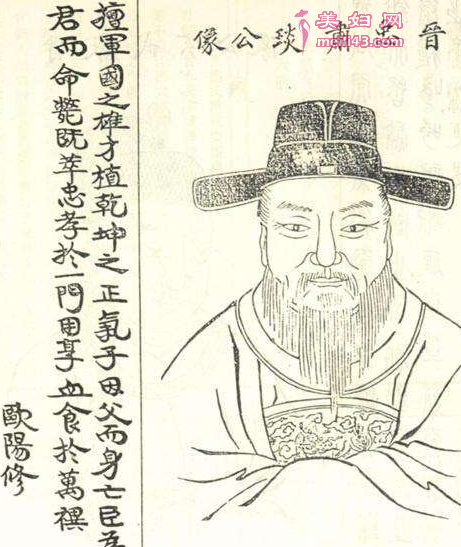 晉忠肅琰公像
擅軍國之雄才植乾坤之正氣子因父而身亡臣為
君而命斃既萃忠孝於一門用享血食於萬禩
歐陽修
美妇网